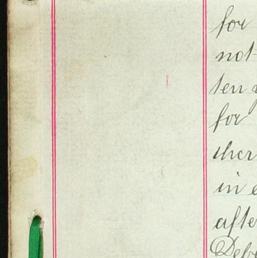 for
not
ten
for
ther
in
afte
Debe